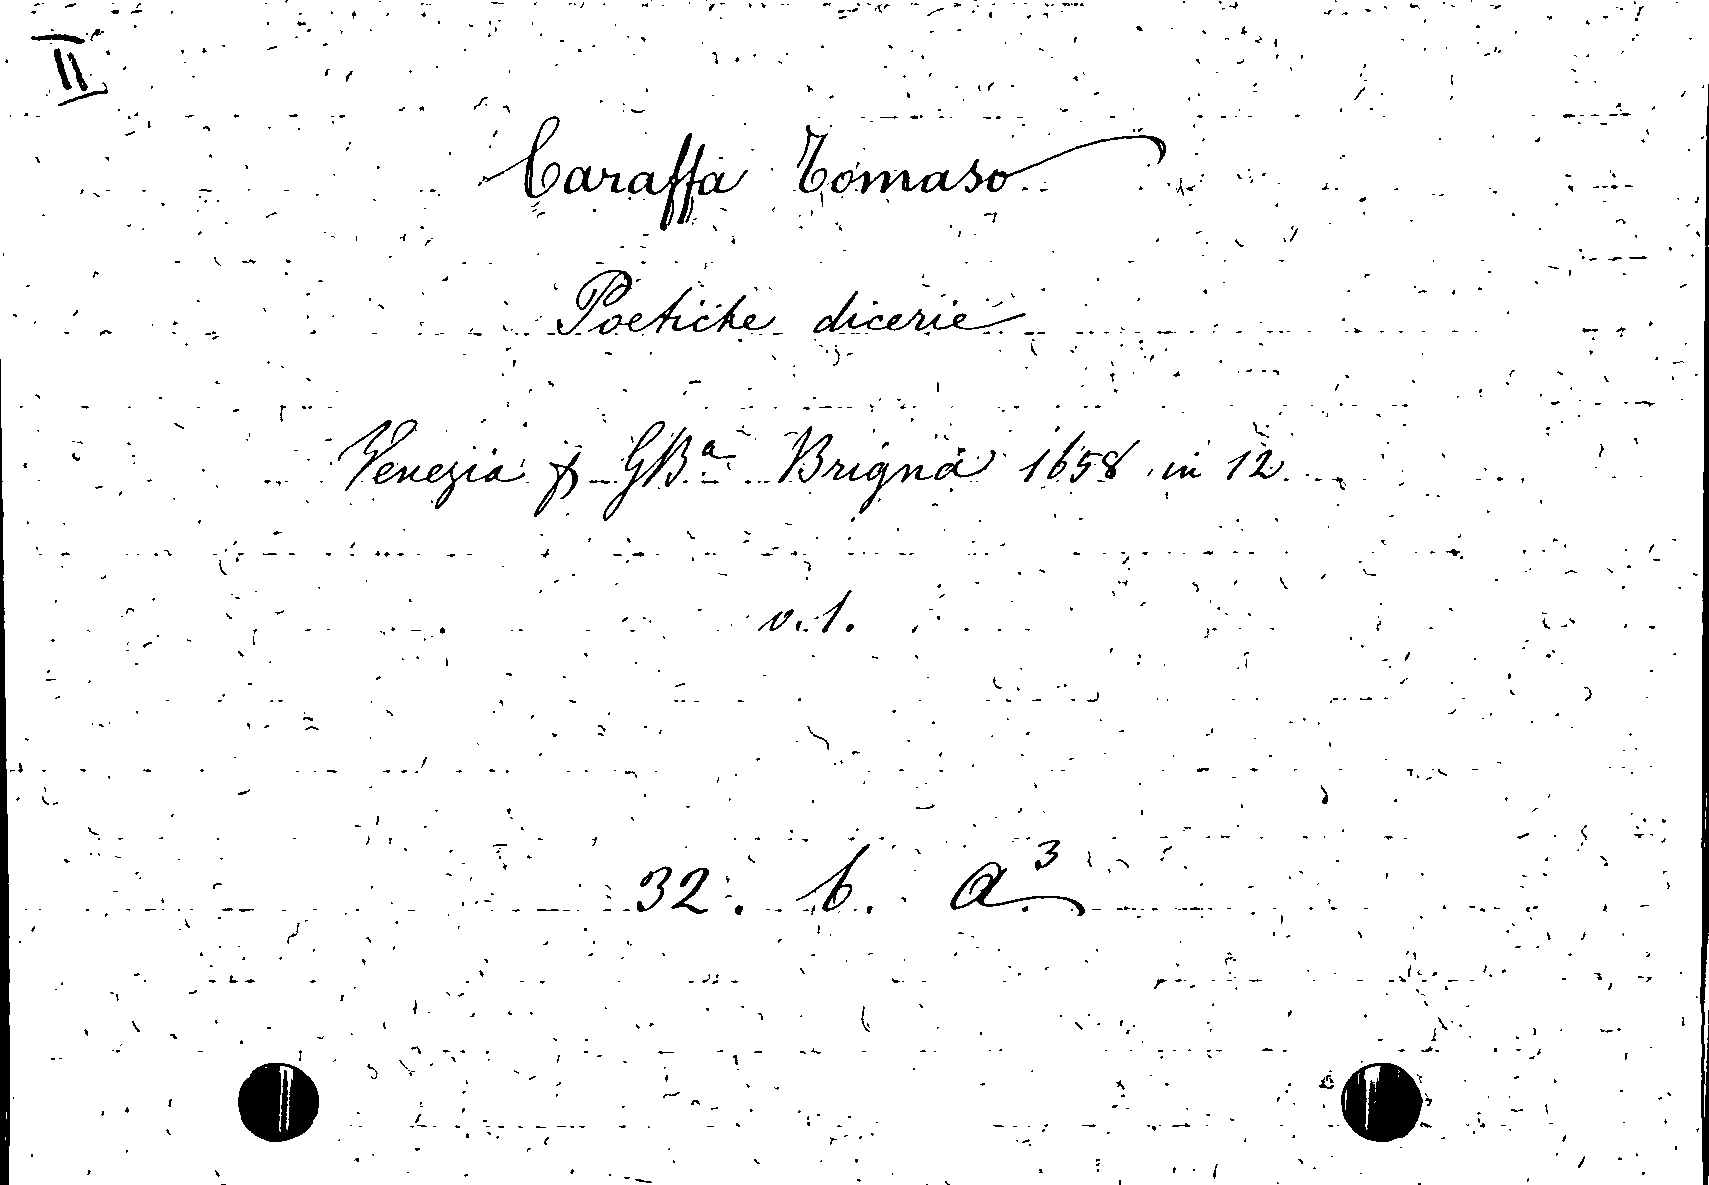 II
Caraffa Tomaso
Poetiche dicerie
Venezia p GBa Brigna 1658 in 12
v. 1.
32. b. a3